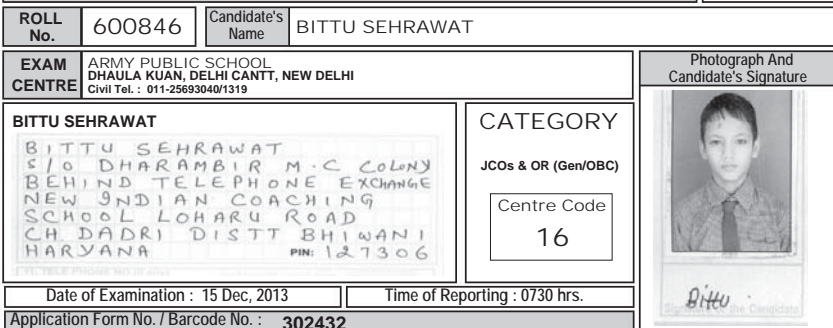 ROLL No. 600846 Candidate's Name BITTU SEHRAWAT
EXAM CENTRE
ARMY PUBLIC SCHOOL
DHAULA KUAN, DELHI CANTT, NEW DELHI
Civil Tel. : 011-25693040/1319
Photograph And
Candidate's Signature
BITTU SEHRAWAT
BITTU SEHRAWAT
S/O DHARAMBIR M.C COLONY
BEHIND TELEPHONE EXCHANGE
NEW INDIAN COACHING
SCHOOL LOHARU ROAD
CH. DADRI DISTT BHIWANI
HARYANA PIN: 127306
CATEGORY
JCOs & OR (Gen/OBC)
Centre Code
16
Bittu
Signature of the Candidate
Date of Examination : 15 Dec, 2013
Time of Reporting : 0730 hrs.
Application Form No. / Barcode No. : 302432